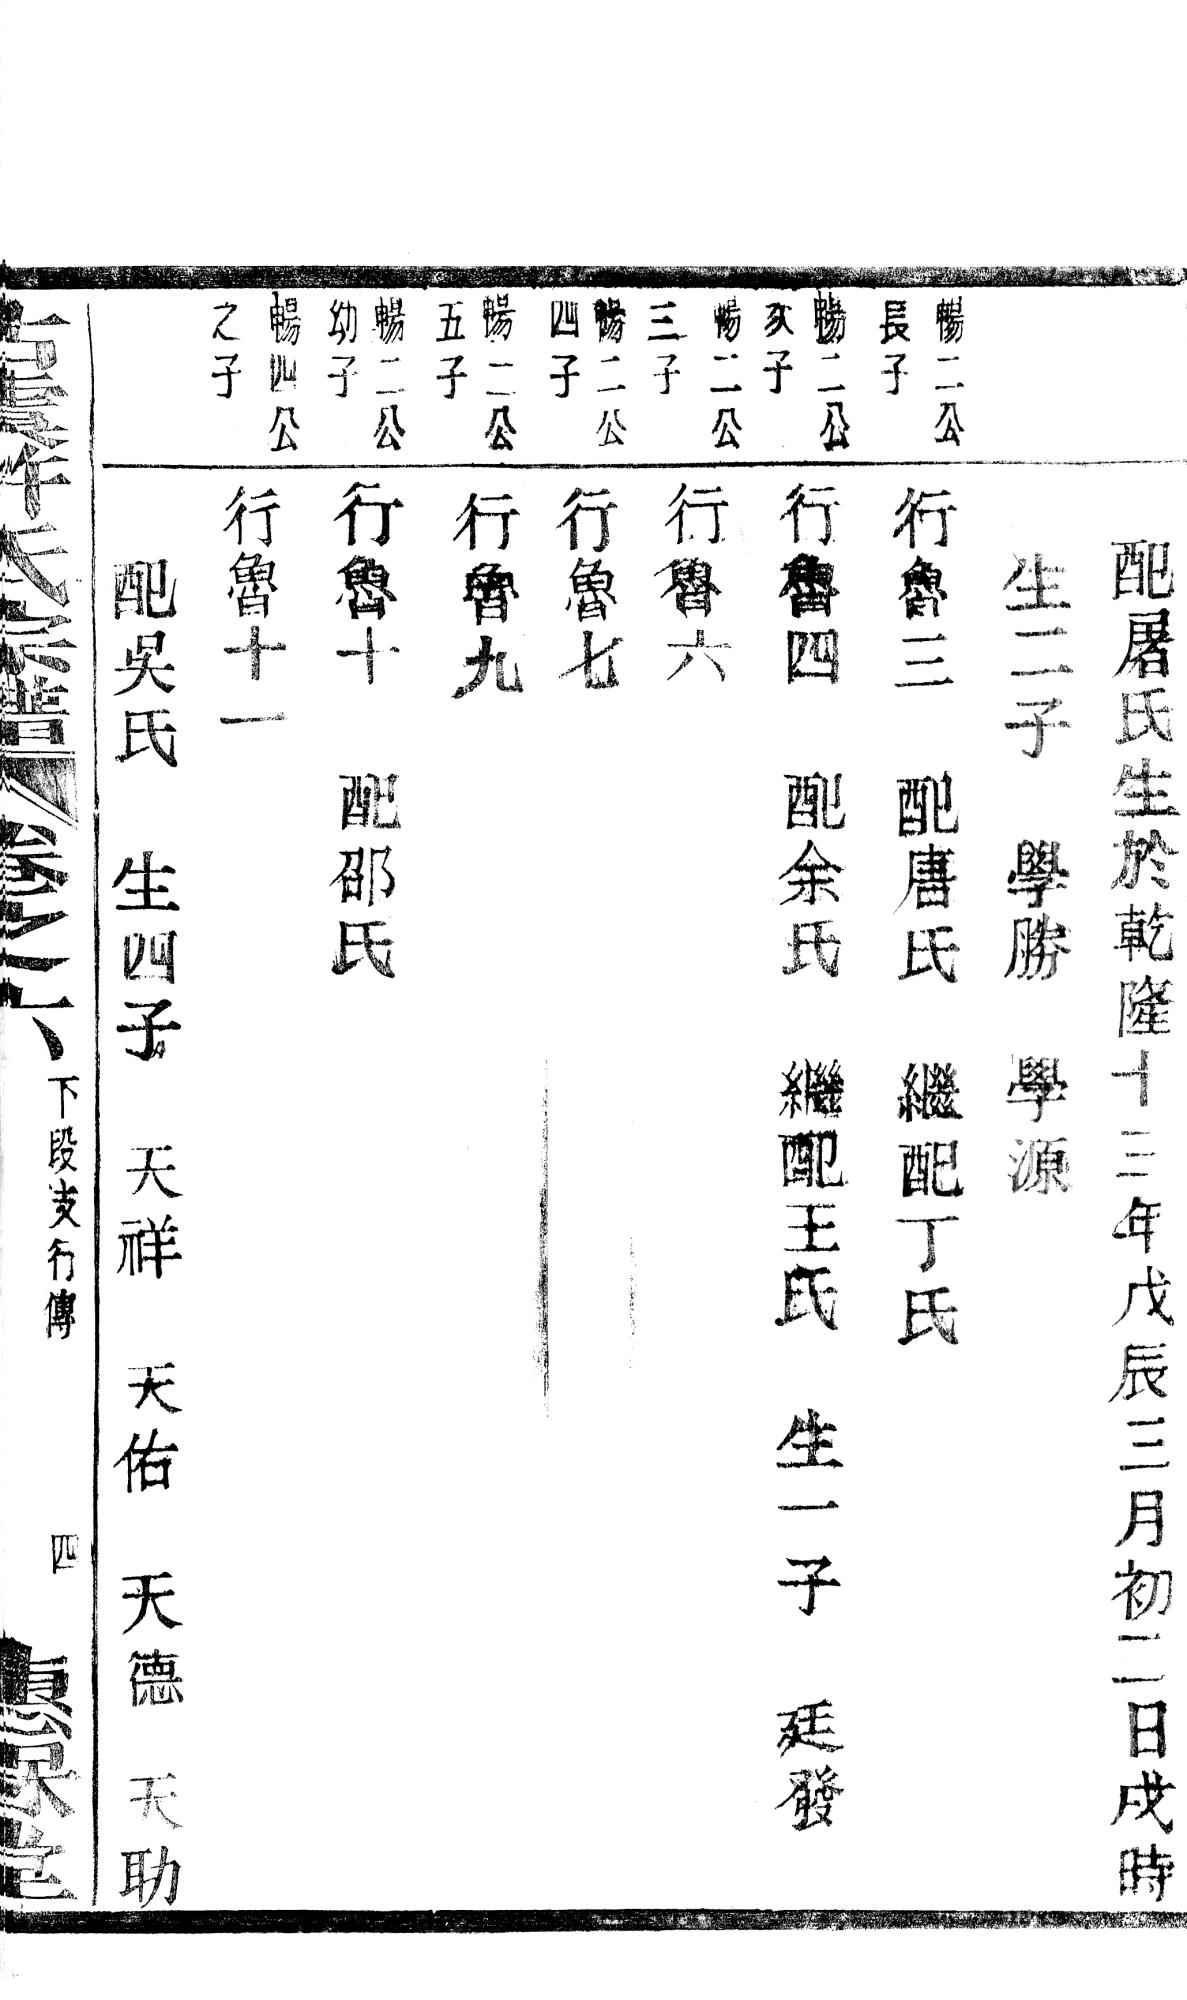 配屠氏生於乾隆十三年戊辰三月初二日戌時
生二子 學勝 學源
暢二公
長子
行魯三 配唐氏 繼配丁氏
暢二公
次子
行魯四 配余氏 繼配王氏 生一子 廷發
暢二公
三子
行魯六
暢二公
四子
行魯七
暢二公
五子
行魯九
暢二公
幼子
行魯十 配邵氏
暢四公
之子
行魯十一
配吳氏 生四子 天祥 天佑 天德 天助
氏宗譜 卷之六 下段支行傳 四